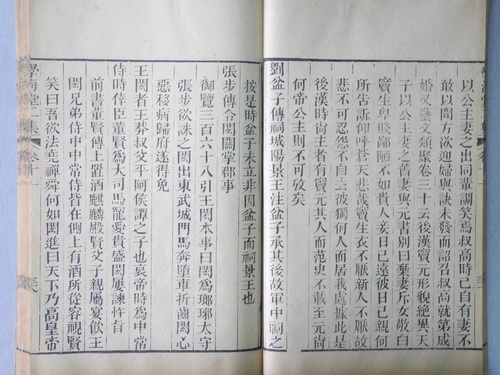 以公主妻之出同輩調笑焉叔高時已自有妻不
敢以聞方欲迎婦與訣未發而詔召叔高就第成
婚又藝文類聚卷三十云後漢竇元形貌絕異天
子以公主妻之舊妻與元書別曰棄妻斥女敬白
竇生卑賤鄙陋不如貴人妾日已遠彼日已親何
所告訴仰呼蒼天悲哉竇生衣不厭新人不厭故
悲不可忍怨不自去彼獨何人而居我處據此是
後漢時尚主者有竇元其人而范史不載
何帝公主則不可攷矣
劉盆子傳祠城陽景王注盆子承其後故軍中祠之
按是時盆子未立非因盆子而祠景王也
張步傳令閎關掌郡事
御覽三百六十八引王閎本事曰閎爲瑯琊太守
張步欲誅之閎出東武城門馬奔墮車折齒閎心
惡移病歸府遂得免
王閎者王莽叔父平阿侯譚之子也哀帝時爲中常
侍時倖臣董賢爲大司馬寵愛貴盛閎屢諫忤旨
前書董賢傳上置酒麒麟殿賢父子親屬宴飲王
閎兄弟侍中中常侍皆在側上有酒所從容視賢
笑曰吾欲法堯禪舜何如閎進曰天下乃高皇帝
學海堂二集